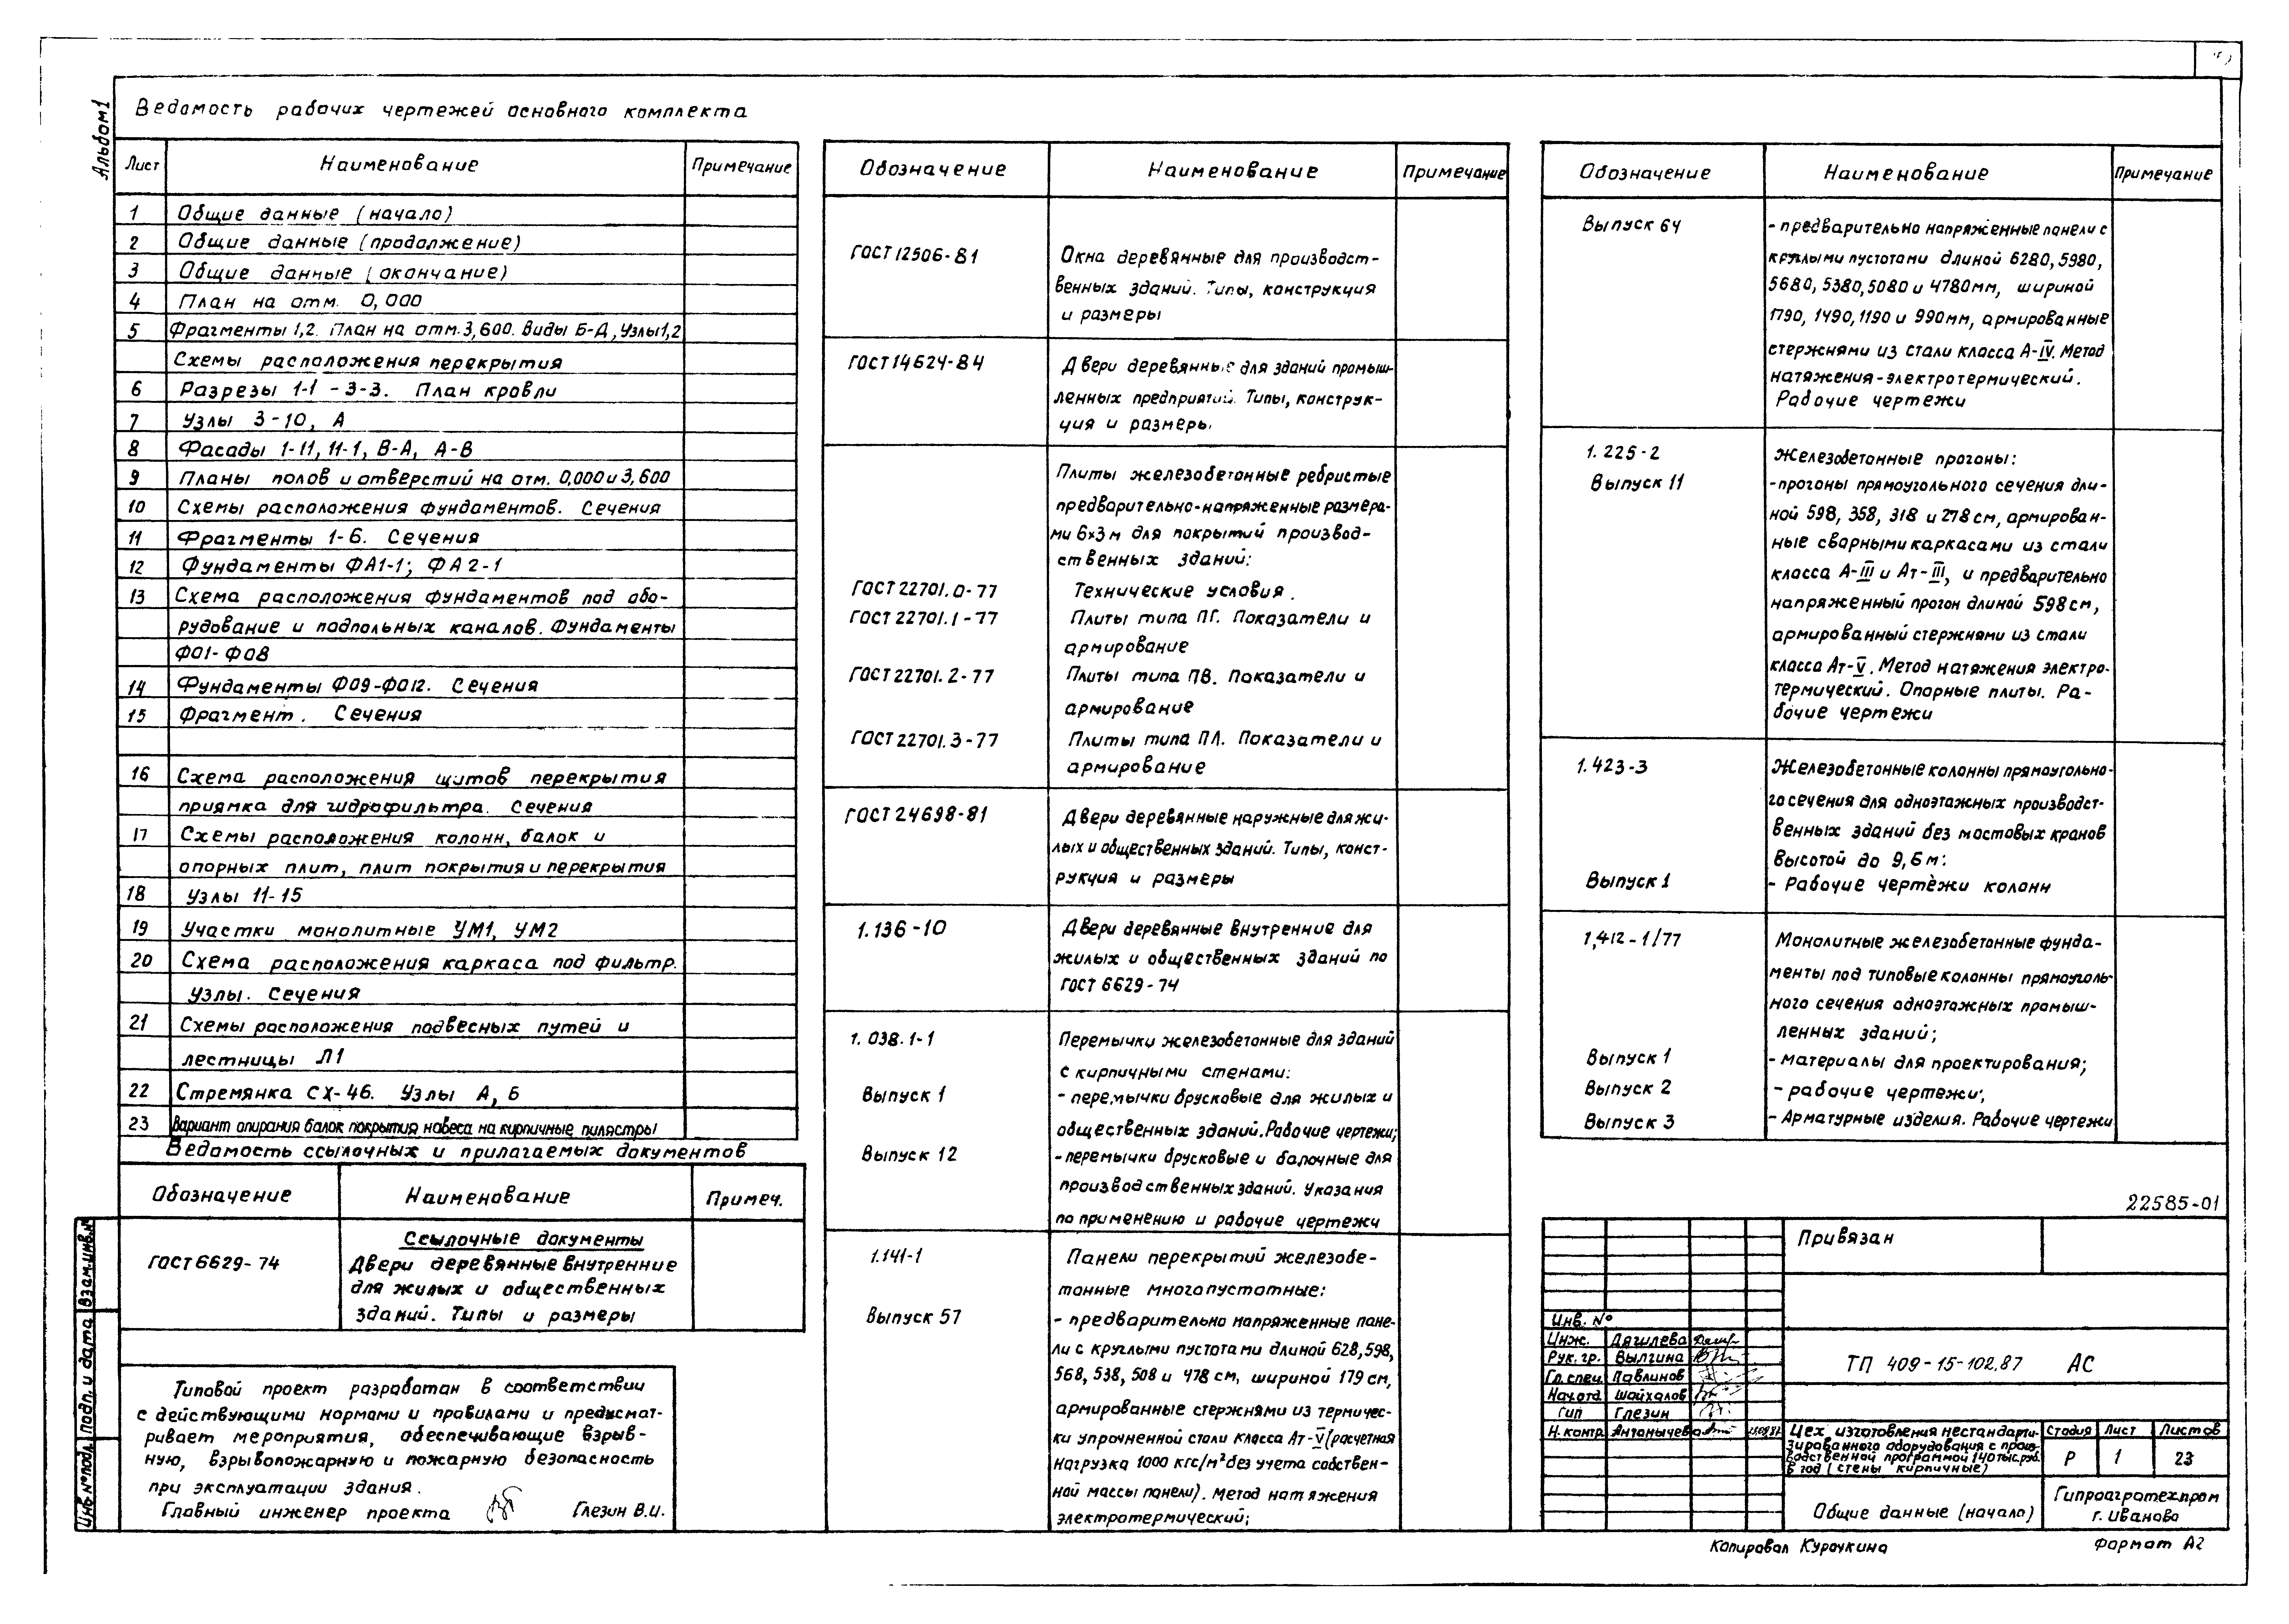 Альбом 1
Ведомость рабочих чертежей основного комплекта
Лист Наименование Примечание
1 Общие данные (начало)
2 Общие данные (продолжение)
3 Общие данные (окончание)
4 План на отм. 0,000
5 Фрагменты 1,2. План на отм. 3,600. Виды Б-Д, Узлы 1,2
Схемы расположения перекрытия
6 Разрезы 1-1 - 3-3. План кровли
7 Узлы 3-10, А
8 Фасады 1-11, 11-1, В-А, А-В
9 Планы полов и отверстий на отм. 0,000 и 3,600
10 Схемы расположения фундаментов. Сечения
11 Фрагменты 1-6. Сечения
12 Фундаменты ФА1-1; ФА2-1
13 Схема расположения фундаментов под обо-
рудование и подпольных каналов. Фундаменты
Ф01-Ф08
14 Фундаменты Ф09-Ф012. Сечения
15 Фрагмент. Сечения
16 Схема расположения щитов перекрытия
приямка для гидрофильтра. Сечения
17 Схемы расположения колонн, балок и
опорных плит, плит покрытия и перекрытия
18 Узлы 11-15
19 Участки монолитные УМ1, УМ2
20 Схема расположения каркаса под фильтр.
Узлы. Сечения
21 Схемы расположения подвесных путей и
лестницы Л1
22 Стремянка СХ-46. Узлы А, Б
23 Вариант опирания балок покрытия навеса на кирпичные пилястры
Ведомость ссылочных и прилагаемых документов
Обозначение Наименование Примеч.
Ссылочные документы
ГОСТ 6629-74 Двери деревянные внутренние
для жилых и общественных
зданий. Типы и размеры
Типовой проект разработан в соответствии
с действующими нормами и правилами и предусмат-
ривает мероприятия, обеспечивающие взрыв-
ную, взрывопожарную и пожарную безопасность
при эксплуатации здания.
Главный инженер проекта Глезин В.И.
Взам.инв.№
Подп. и дата
Инв.№ подл.
Обозначение Наименование Примечание
ГОСТ 12506-81 Окна деревянные для производст-
венных зданий. Типы, конструкция
и размеры
ГОСТ 14624-84 Двери деревянные для зданий промыш-
ленных предприятий. Типы, конструк-
ция и размеры
Плиты железобетонные ребристые
предварительно-напряженные размера-
ми 6х3м для покрытий производ-
ственных зданий:
ГОСТ 22701.0-77 Технические условия.
ГОСТ 22701.1-77 Плиты типа ПГ. Показатели и
армирование
ГОСТ 22701.2-77 Плиты типа ПВ. Показатели и
армирование
ГОСТ 22701.3-77 Плиты типа ПЛ. Показатели и
армирование
ГОСТ 24698-81 Двери деревянные наружные для жи-
лых и общественных зданий. Типы, конст-
рукция и размеры
1.136-10 Двери деревянные внутренние для
жилых и общественных зданий по
ГОСТ 6629-74
1.038.1-1 Перемычки железобетонные для зданий
с кирпичными стенами:
Выпуск 1 - перемычки брусковые для жилых и
общественных зданий. Рабочие чертежи;
Выпуск 12 - перемычки брусковые и балочные для
производственных зданий. Указания
по применению и рабочие чертежи
1.141-1 Панели перекрытий железобе-
тонные многопустотные:
Выпуск 57 - предварительно напряженные пане-
ли с круглыми пустотами длиной 628, 598,
568, 538, 508 и 478 см, шириной 179 см,
армированные стержнями из термичес-
ки упрочненной стали класса Ат-V (расчетная
нагрузка 1000 кгс/м² без учета собствен-
ной массы панели). Метод натяжения
электротермический;
Обозначение Наименование Примечание
Выпуск 64 - предварительно напряженные панели с
круглыми пустотами длиной 6280, 5980,
5680, 5380, 5080 и 4780мм, шириной
1790, 1490, 1190 и 990мм, армированные
стержнями из стали класса А-IV. Метод
натяжения-электротермический.
Рабочие чертежи
1.225-2 Железобетонные прогоны:
Выпуск 11 - прогоны прямоугольного сечения дли-
ной 598, 358, 318 и 278 см, армирован-
ные сварными каркасами из стали
класса А-III и Ат-III, и предварительно
напряженный прогон длиной 598 см,
армированный стержнями из стали
класса Ат-V. Метод натяжения электро-
термический. Опорные плиты. Ра-
бочие чертежи
1.423-3 Железобетонные колонны прямоугольно-
го сечения для одноэтажных производст-
венных зданий без мостовых кранов
высотой до 9,6 м:
Выпуск 1 - Рабочие чертежи колонн
1,412-1/77 Монолитные железобетонные фунда-
менты под типовые колонны прямоуголь-
ного сечения одноэтажных промыш-
ленных зданий;
Выпуск 1 - материалы для проектирования;
Выпуск 2 - рабочие чертежи;
Выпуск 3 - Арматурные изделия. Рабочие чертежи
22585-01
Привязан
Инв. №
Инж. Дягилева
Рук. гр. Вылгина
Гл. спец. Павлинов
Нач.отд. Шайхалов
ГИП Глезин
Н. контр. Антонычева
ТП 409-15-102.87 АС
Цех изготовления нестандарти-
зированного оборудования с произ-
водственной программой 140 тыс.руб.
в год (стены кирпичные)
Стадия Лист Листов
Р 1 23
Общие данные (начало)
Гипроагротехпром
г. Иваново
Копировал Курочкина Формат А2